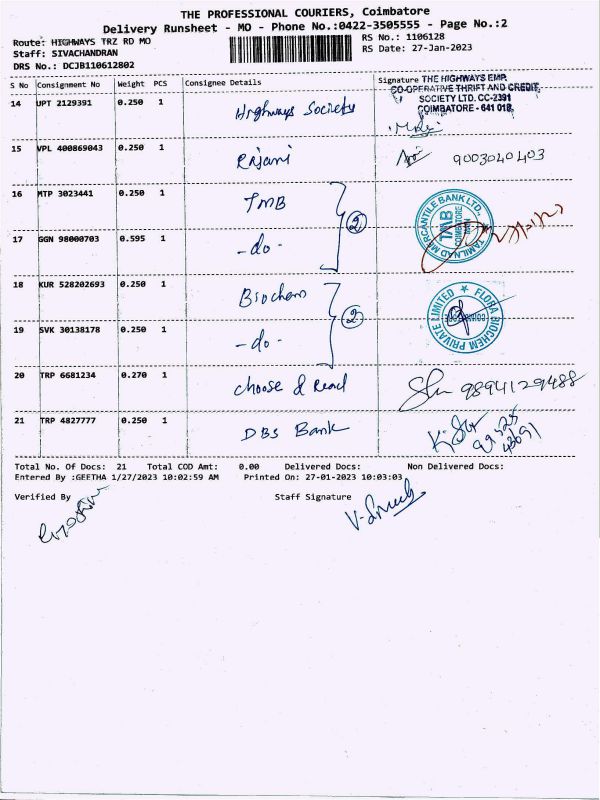 THE PROFESSIONAL COURIERS, Coimbatore
Delivery Runsheet - MO - Phone No.:0422-3505555 - Page No.:2
Route: HIGHWAYS TRZ RD MO RS No.: 1106128
Staff: SIVACHANDRAN RS Date: 27-Jan-2023
DRS No.: DCJB110612802
S No Consignment No Weight PCS Consignee Details Signature
THE HIGHWAYS EMP.
CO-OPERATIVE THRIFT AND CREDIT
SOCIETY LTD. CC-2391
COIMBATORE - 641 018.
14 UPT 2129391 0.250 1 Highways Society
15 VPL 400869043 0.250 1 Rajani 9003040403
16 MTP 3023441 0.250 1 TMB
TAMILNAD MERCANTILE BANK LTD.,
TMB
COIMBATORE
MAIN
2
17 GGN 98000703 0.595 1 -do-
18 KUR 528202693 0.250 1 Biochem
FLORA BIOCHEM PRIVATE LIMITED
2
19 SVK 30138178 0.250 1 -do-
20 TRP 6681234 0.270 1 Choose & Read 9894129488
21 TRP 4827777 0.250 1 DBS Bank
Total No. Of Docs: 21 Total COD Amt: 0.00 Delivered Docs: Non Delivered Docs:
Entered By :GEETHA 1/27/2023 10:02:59 AM Printed On: 27-01-2023 10:03:03
Verified By Staff Signature